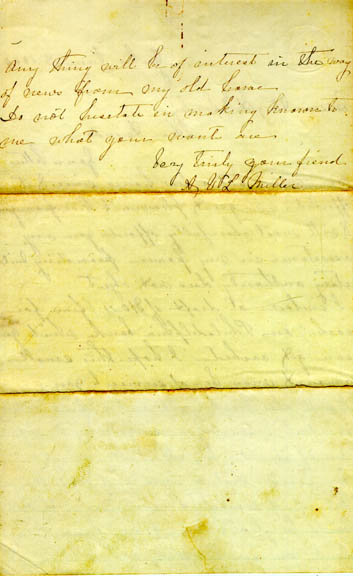 Any thing will be of interest in the way
of news from my old home
Do not hesitate in making known to
me what your wants are
Very Truly your friend
Miller